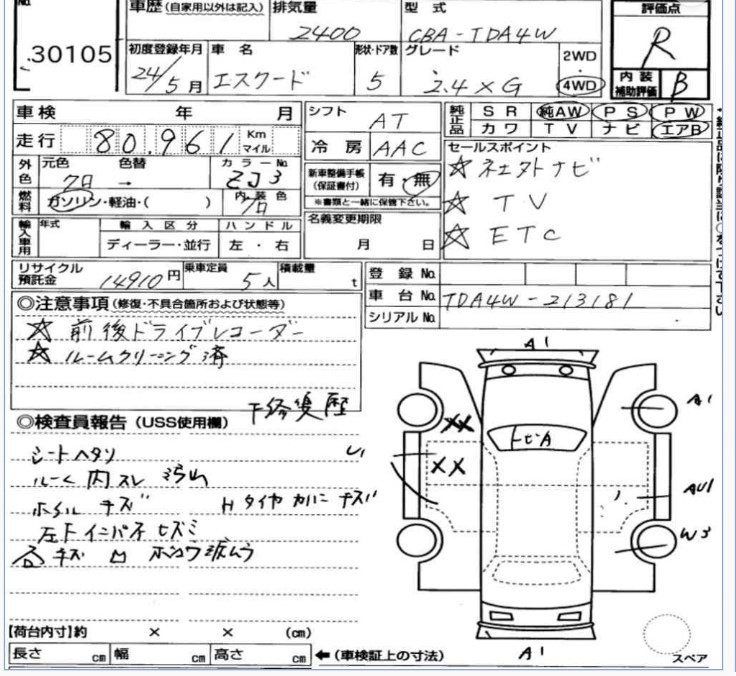 No.
30105
車歴 (自家用以外は記入)
排気量
2400
型式
CBA-TDA4W
評価点
R
内装
補助評価
B
初度登録年月
24/5月
車名
エスクード
形状・ドア数
5
グレード
2.4 XG
2WD
4WD
車検 年 月
走行 80,961 Km マイル
シフト
AT
冷房
AAC
純正品
SR 純AW PS PW
カワ TV ナビ エアB
外色
元色
クロ
色替
→
カラーNo.
ZJ3
燃料
ガソリン・軽油・( )
内装色
クロ
新車整備手帳
(保証書付)
有・無
※書類と一緒に保管下さい。
セールスポイント
☆ ネエタトナビ
☆ TV
☆ ETC
輸入車用
年式
輸入区分
ディーラー・並行
ハンドル
左・右
名義変更期限
月 日
リサイクル
預託金
14910円
乗車定員
5人
積載量
t
登録No.
車台No.
TDA4W-213181
シリアルNo.
◎注意事項 (修復・不具合箇所および状態等)
☆ 前後ドライブレコーダー
☆ ルームクリーニング済
下修復歴
◎検査員報告 (USS使用欄)
シートヘタリ
ルーム内スレ
ホイルキズ
タイヤカバーキズ
A1
XX
XX
トビA
U1
A1
AU1
W3
A1
【荷台内寸】約 × × (cm)
長さ cm 幅 cm 高さ cm
←(車検証上の寸法)
スペア